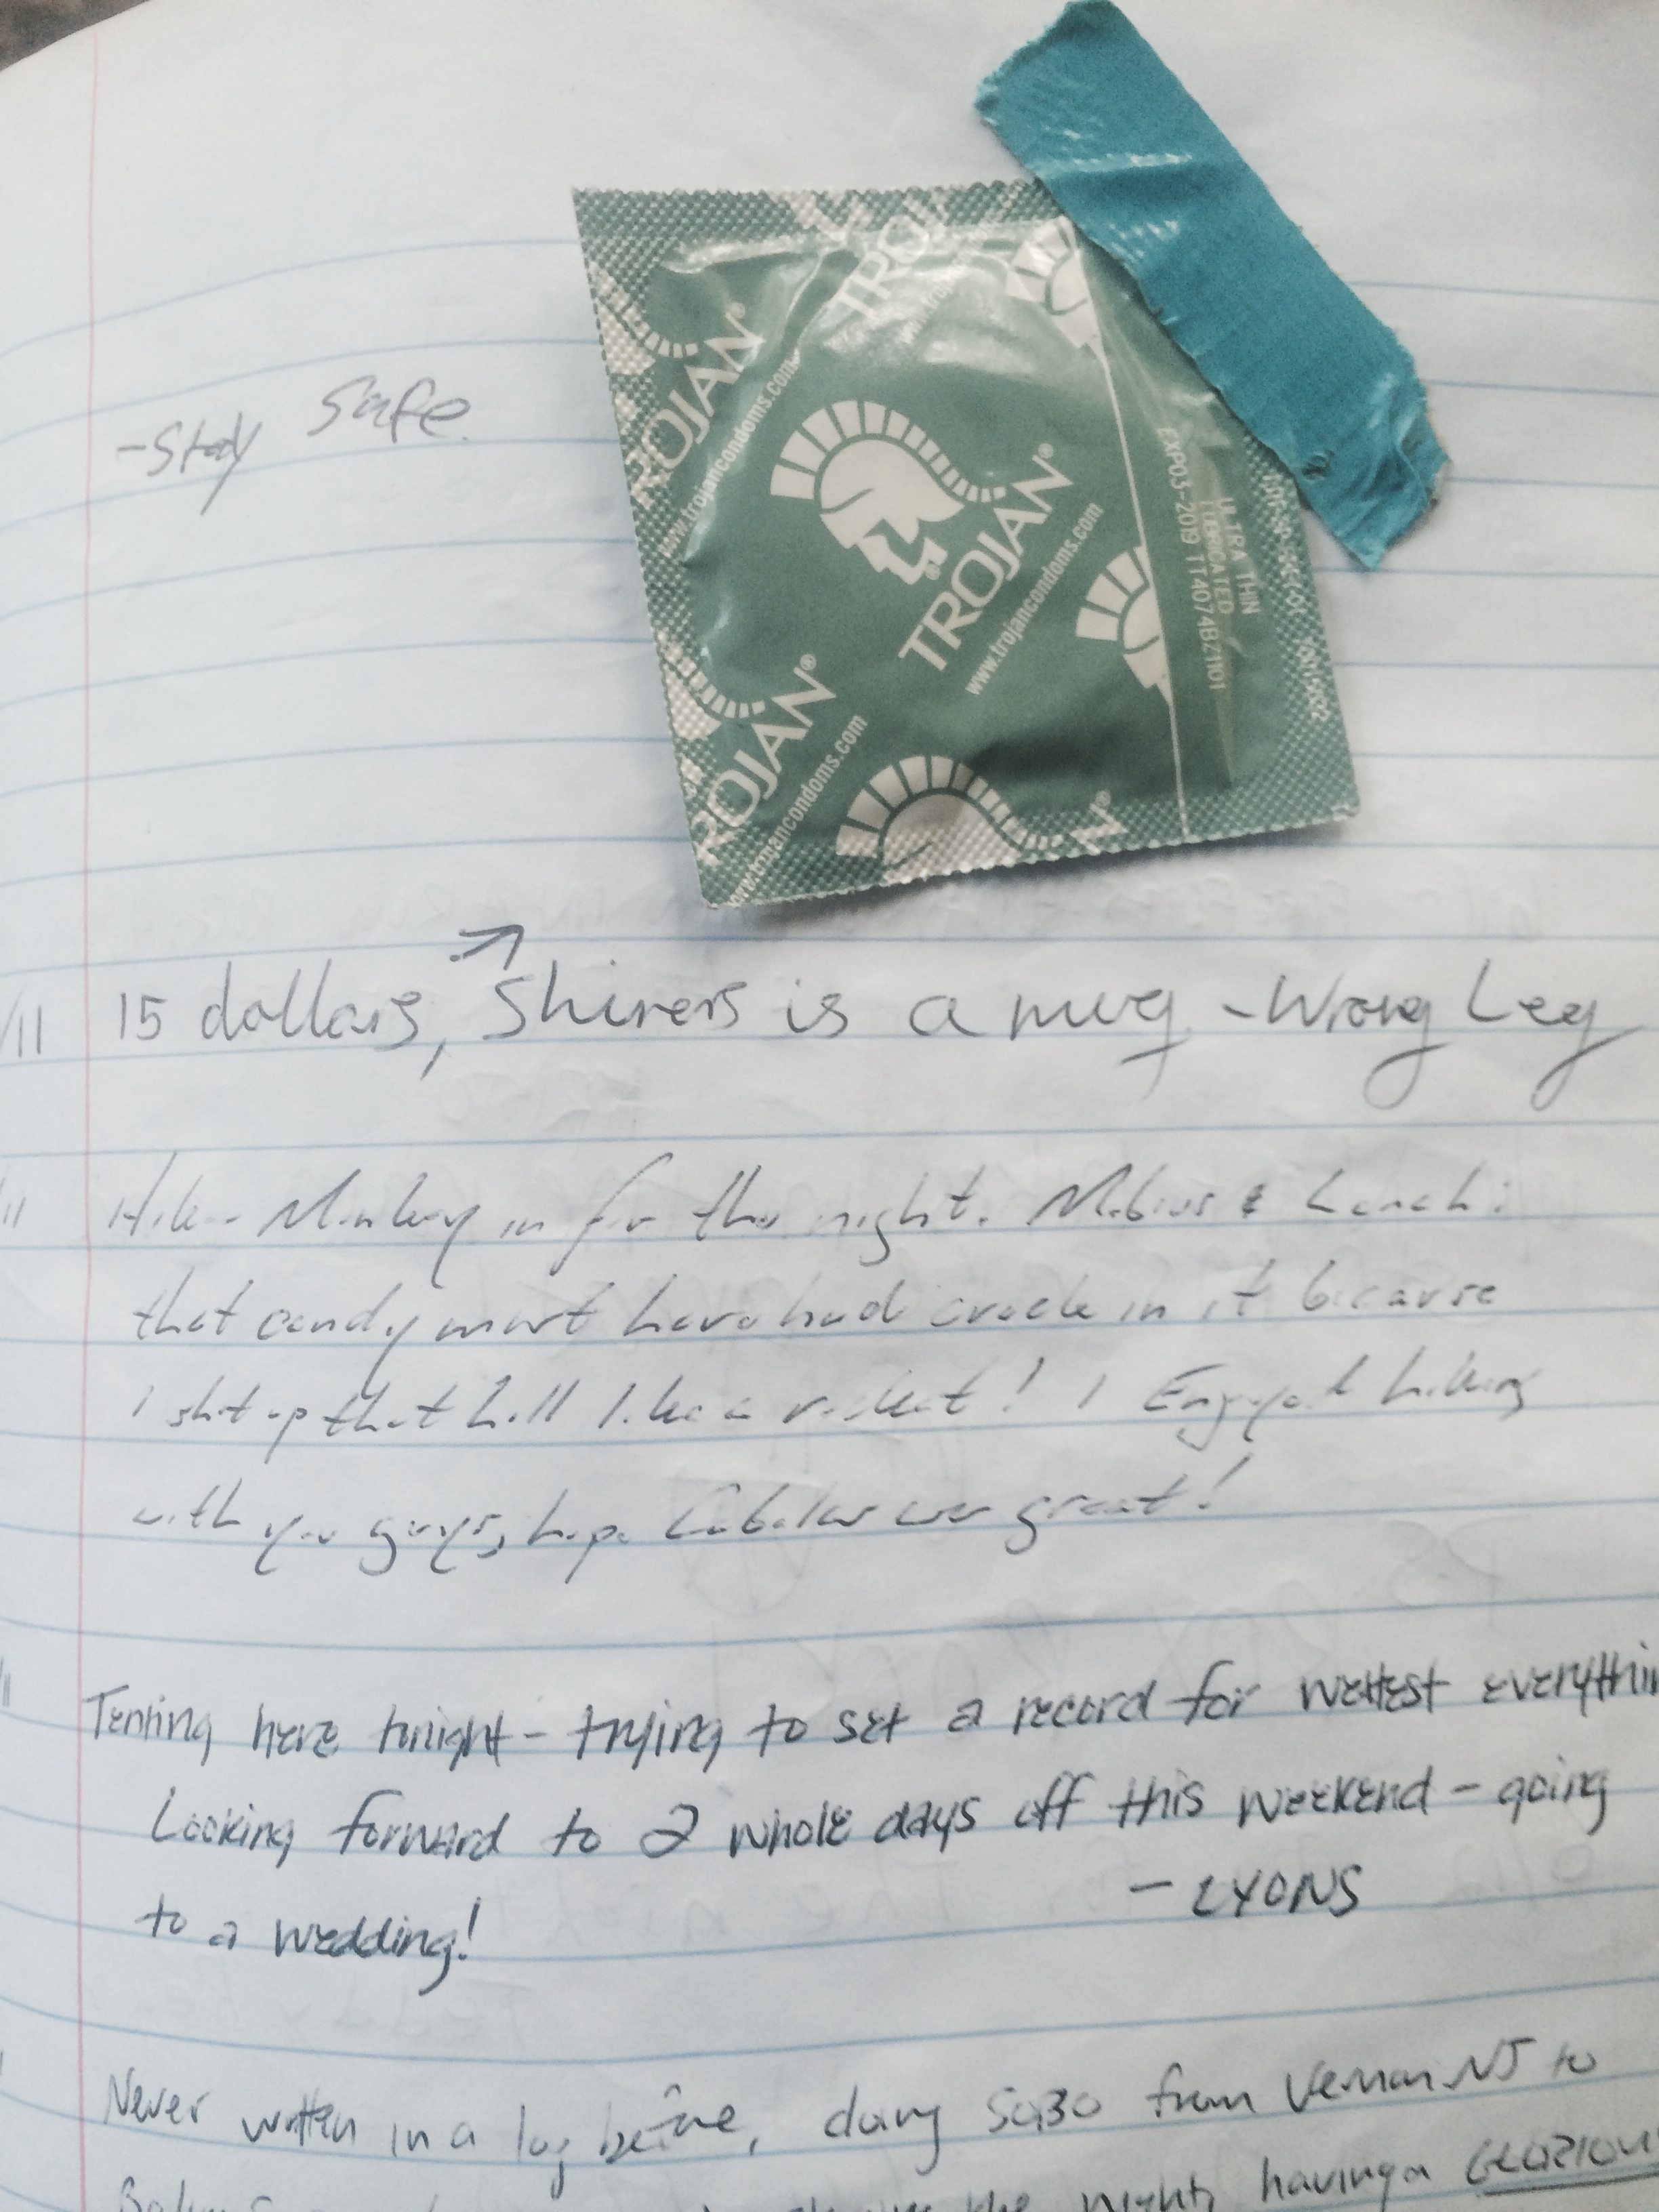 -Stay safe.
TROJAN®
www.trojancondoms.com
TROJ
www.troja
TROJAN®
www.trojancondoms.com
EXP03-2019 TT4074BZ1101
LUBRICATED
ULTRA THIN
TROJAN®
www.trojancondoms.com
N®
/11 15 dollars, ↗ Shirers is a mug. - Wrong Leg
11 Hiker Monkey in for the night. Mobius &
that candy must have had crack in it because
I shot up that hill like a rocket! I Enjoyed hiking
with you guys, hope Cabelas was great!
11 Tenting here tonight - trying to set a record for wettest everythin
Looking forward to 2 whole days off this weekend - going
to a wedding! - LYONS
Never written in a log before, doing SOBO from Vernon NJ to
the night, having a GLORIOU